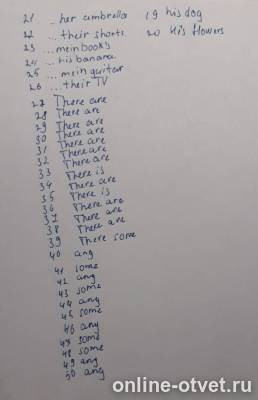 21 ...her umbrella 19 his dog
22 ...their shorts. 20 His flowers
23 ...mein books
24 ...his banana
25 ...mein guitar
26 ...their TV
27 There are
28 There are
29 There are
30 There are
31 There are
32 There are
33 There is
34 There are
35 There is
36 There are
37 There are
38 There are
39 There some
40 ang
41 some
42 ang
43 some
44 ang
45 some
46 ang
47 some
48 some
49 ang
50 ang
online-otvet.ru